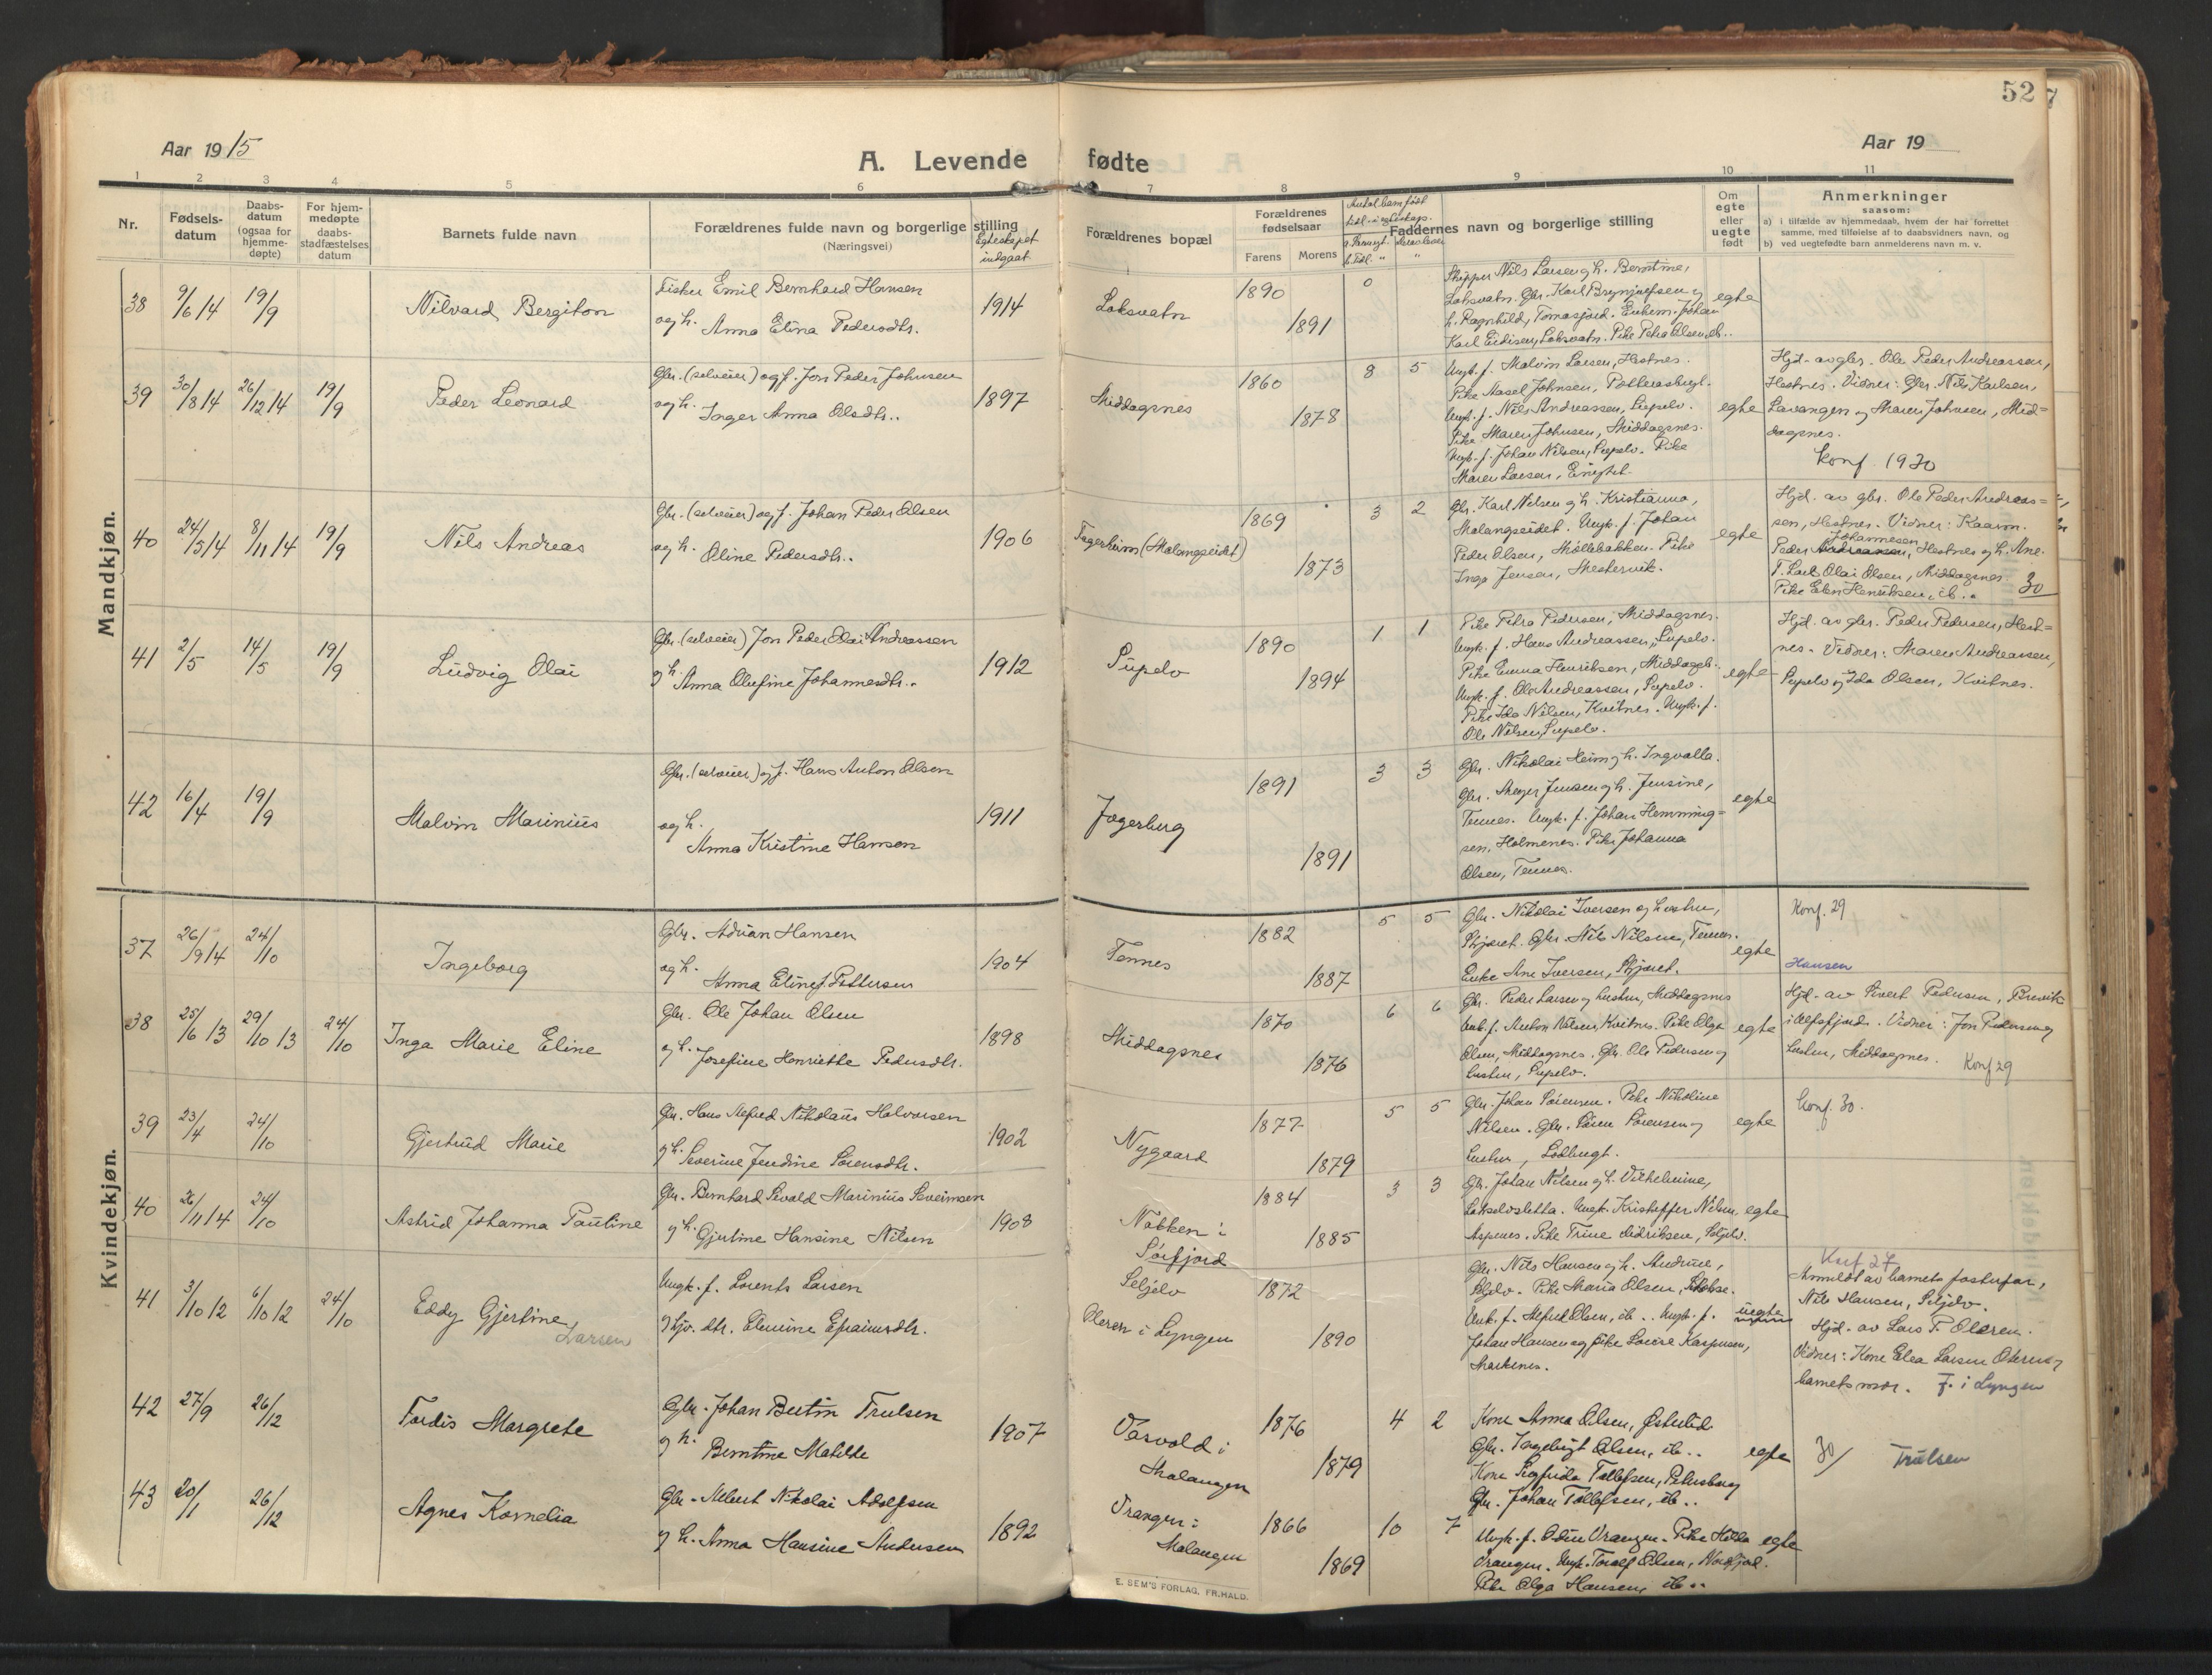 52
7
Aar 1915
A. Levende fødte
Aar 19
1 2 3 4 5 6 7 8 9 10 11
Nr.
Fødsels-
datum
Daabs-
datum
(ogsaa for
hjemme-
døpte)
For hjem-
medøpte
daabs-
stadfæstelses
datum
Barnets fulde navn
Forældrenes fulde navn og borgerlige stilling
(Næringsvei)
Egteskapet
indgaat
Forældrenes bopæl
Forældrenes
fødselsaar
Farens Morens
Faddernes navn og borgerlige stilling
Om
egte
eller
uegte
født
Anmerkninger
saasom:
a) i tilfælde av hjemmedaab, hvem der har forrettet
samme, med tilføielse af to daabsvidners navn, og
b) ved uegtefødte barn anmelderens navn m. v.
Mandkjøn.
38 9/6 14 19/9
Nilvard Bergiton
Fisker Emil Bernhard Hansen
og h. Anna Elina Pedersdtr.
1914
Loksvatn
1890
1891
0
Skipper Nils Larsen og h. Berntine,
Loksvatn. Gbr. Karl Brynjulfsen og
h. Ragnhild, Tomasjord. Enkem. Johan
Karl Eidisen, Loksvatn. Pike Petra Olsen, ib..
egte
39 30/8 14 26/12 14 19/9
Peder Leonard
Gbr. (selveier) og f. Jon Peder Johnsen
og h. Inger Anna Olsdtr..
1897
Middagsnes
1860
1878
8 5
Ungk. f. Malvin Larsen, Hestnes.
Pike Aasel Johnsen,
Ungk. f. Nils Andreassen, Supelv.
Pike Maren Johnsen, Middagsnes.
Ungk. f. Johan Nilsen, Supelv. Pike
Maren Larsen,
egte
Hjd. av gbr. Ole Peder Andreassen,
Hestnes. Vidner: Gbr. Nils Karlsen,
Lavangen og Maren Johnsen, Mid=
dagsnes.
Konf. 1930
40 24/5 14 8/11 14 19/9
Nils Andreas
Gbr. (selveier) og f. Johan Peder Olsen
og h. Oline Pedersdtr..
1906
Fagerheim (Malangseidet)
1869
1873
3 2
Gbr. Karl Nilsen og h. Kristianna,
Malangseidet. Ungk. f. Johan
Peder Olsen, Møllebakken. Pike
Inga Jensen, Mestervik.
egte
Hjd. av gbr. Ole Peder Andreas=
sen, Hestnes. Vidner: Kaarm.
Johannesen
Peder Andreassen, Hestnes og h. Ane.
T. Lars Olai Olsen, Middagsnes.
Pike Elen Henriksen, ib.. 30
41 2/5 14/5 19/9
Ludvig Olai
Gbr. (selveier) Jon Peder Olai Andreassen
og h. Anna Olufine Johannesdtr..
1912
Supelv
1890
1894
1 1
Pike Petra Pedersen, Middagsnes.
Ungk. f. Hans Andreassen, Supelv.
Pike Emma Henriksen, Middagsb.
Ungk. f. Ole Andreassen, Supelv.
Pike Ida Nilsen, Kvitnes. Ungk. f.
Ole Nilsen, Supelv.
egte
Hjd. av gbr. Peder Pedersen, Hest=
nes. Vidner: Maren Andreassen,
Supelv og Ida Olsen, Kvitnes.
42 16/4 19/9
Malvin Marinius
Gbr. (selveier) og f. Hans Anton Olsen
og h.
Anna Kristine Hansen
1911
Jægerberg
1891
1891
3 3
Gbr. Nikolai Heim og h. Ingvalla.
Gbr. Meyer Jensen og h. Jensine,
Tennes. Ungk. f. Johan Hemming=
sen, Holmenes. Pike Johanna
Olsen, Tennes.
egte
Kvindekjøn.
37 26/9 14 24/10
Ingeborg
Gbr. Adrian Hansen
og h. Anna Eline f. Pettersen
1904
Tennes
1882
1887
5 5
Gbr. Nikolai Iversen og hustru,
Skjæret. Gbr. Nils Nilsen, Tennes.
Enke Ane Iversen, Skjæret.
egte
Konf. 29
Hansen
38 25/6 13 29/10 13 24/10
Inga Marie Eline
Gbr. Ole Johan Olsen
og h. Josefine Henriette Pedersdtr.
1898
Middagsnes
1870
1876
6 6
Gbr. Peder Larsen og hustru, Middagsnes
Unk. f. Anton Nilsen, Kvitnes. Pike Olga
Olsen, Middagsnes. Gbr. Ole Pedersen og
hustru, Supelv.
egte
Hjd. av Sivert Pedersen, Brevik
i Ulfsfjord. Vidner: Jon Pedersen og
hustru, Middagsnes. Konf 29
39 23/4 24/10
Gjertrud Marie
Gbr. Hans Alfred Nikolaus Halvorsen
og h. Severine Jendine Sørensdtr.
1902
Nygaard
1877
1879
5 5
Gbr. Johan Sørensen. Pike Nikoline
Nilsen. Gbr. Søren Sørensen og
hustru, Lodbugt.
egte
Konf. 30.
40 26/11 14 24/10
Astrid Johanna Pauline
Gbr. Bernhard Sevald Marinius Severinsen
og h. Gjertine Hansine Nilsen
1908
Nakken i
Sørfjord
1884
1885
3 3
Gbr. Johan Nilsen og h. Vilhelmine,
Lakselvsletta. Ungk. Kristoffer Nilsen,
Aspenes. Pike Trine Didriksen, Seljelv.
egte
41 3/10 12 6/10 12 24/10
Eddy Gjertine
Larsen
Ungk. f. Lorents Larsen
og tjv. dtr. Elenine Efraimsdtr.
Seljelv
Oteren i Lyngen
1872
1890
Gbr. Nils Hansen og h. Andrine,
Seljelv. Pike Maria Olsen,
Unk. f. Alfred Olsen, ib.. Ungk. f.
Johan Hansen og pike Lovise Kaspersen,
Markenes.
uegte
Konf 27
Anmeldt av barnets fosterfar,
Nils Hansen, Seljelv.
Hjd. av Lars P. Oteren.
Vidner: Kone Elea Larsen Oteren og
barnets mor. F. i Lyngen
42 27/9 26/12
Tordis Margrete
Gbr. Johan Bertin Trulsen
og h. Berntine Matilde
1907
Vasvold i
Malangen
1876
1879
4 2
Kone Anna Olsen, Østerlid
Gbr. Ingebrigt Olsen, ib..
Kone Sigfrida Tollefsen, Petersborg
Gbr. Johan Tollefsen, ib..
egte
30/ Trulsen
43 20/1 26/12
Agnes Kornelia
Gbr. Albert Nikolai Adolfsen
og h. Anna Hansine Andersen
1892
Vrangen i
Malangen
1866
1869
10 7
Ungk. f. Odin Vrangen. Pike Hilda
Vrangen. Ungk. Toralf Olsen, Nordfjord.
Pike Olga Hansen, ib..
egte
E. SEM'S FORLAG, FR.HALD.